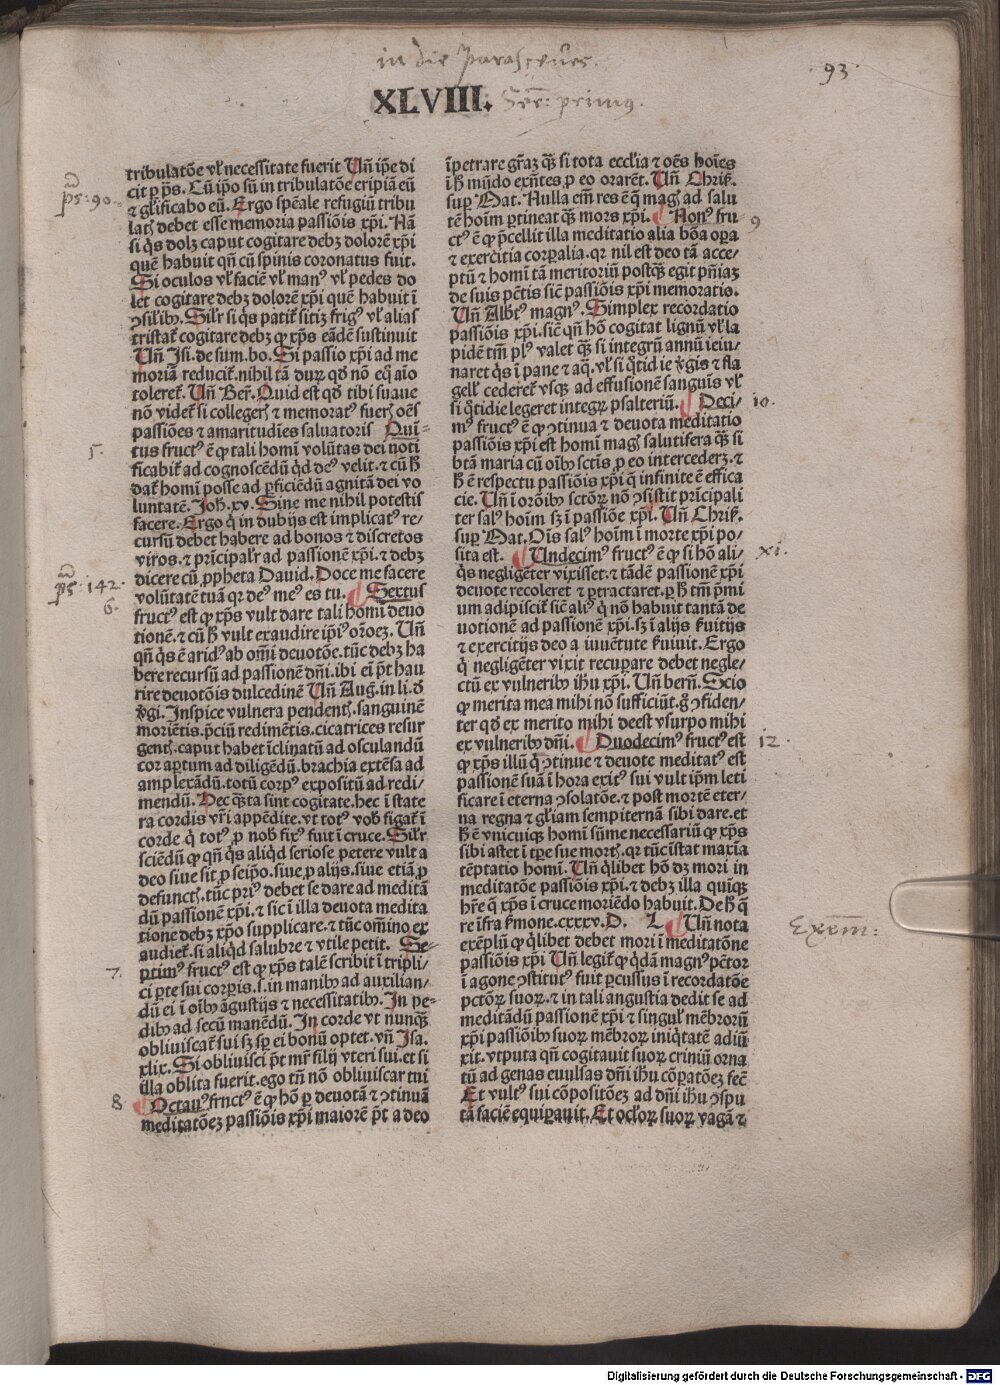 in die parasceues.
93
XLVIII. Ser: primus.
tribulatōe vl̕ necessitate fuerit Un̄ ip̄e di
cit p̱ p̄s. Cū ip̄o sū in tribulatōe eripiā eū
ps: 90.
⁊ gl̕ificabo eū. Ergo sp̄eale refugiū tribu
latꝭ debet esse memoria passiōis xp̄i. Nā
si q̄s dolꝫ caput cogitare debꝫ dolorē xp̄i
quē habuit qn̄ cū spinis coronatus fuit.
Si oculos vl̕ faciē vl̕ manꝰ vl̕ pedes do
let cogitare debꝫ dolorē xp̄i quē habuit ī
ꝯsilibꝫ. Silr̕ si q̄s patit̕ sitiꝫ frigꝰ vl̕ alias
tristat̕ cogitare debꝫ ꝙ xp̄s eādē sustinuit
Un̄ Isi. de sum. bo. Si passio xp̄i ad me
moriā reducit̕. nihil tā duꝝ qd̄ nō eq̄ aīo
toleret̕. Un̄ Ber. Quid est qd̄ tibi suaue
nō videt̕ si collegerꝭ ⁊ memoratꝰ fuerꝭ oēs
passiōes ⁊ amaritudīes saluatoris Qui-
5.
tus fructꝰ ē ꝙ tali homī volūtas dei noti
ficabit̕ ad cognoscēdū qd̄ deꝰ velit. ⁊ cū h̄
dat̕ homī posse ad p̱ficiēdū agnitā dei vo
luntatē. Joh. xv. Sine me nihil potestis
facere. Ergo q̄ in dubijs est implicatꝰ re/
cursū debet habere ad bonos ⁊ discretos
viros. ⁊ prīcipalr̕ ad passionē xp̄i. ⁊ debꝫ
dicere cū ꝓpheta Dauid. Doce me facere
ps: 142.
volūtatē tuā qꝛ deꝰ meꝰ es tu. Sextus
6.
fructꝰ est ꝙ xp̄s vult dare tali homī deuo
tionē. ⁊ cū h̄ vult exaudire ip̄iꝰ or̄oeꝫ. Un̄
qn̄ q̄s ē aridꝰ ab om̄i deuotōe. tūc debꝫ ha
bere recursū ad passionē dn̄i. ibi ei p̄t hau
rire deuotōis dulcedinē Un̄ Aug. in li. d̄
v̄gi. Inspice vulnera pendentꝭ. sanguinē
moriētis. p̄ciū redimētis. cicatrices resur
gentꝭ. caput habet īclinatū ad osculandū
cor ap̱tum ad diligēdū. brachia extēsa ad
amplexādū. totū corpꝰ expositū ad redi/
mendū. Hec quāta sint cogitate. hec ī state
ra cordis vr̄i appēdite. vt totꝰ vob̕ figat̕ ī
corde q̄ totꝰ ꝓ nob̕ fixꝰ fuit ī cruce. Silr̕
sciēdū ꝙ qn̄ q̄s aliqd̄ seriose petere vult a
deo siue sit ꝓ seip̄o. siue ꝓ alijs. siue etiā ꝓ
defunctꝭ. tūc priꝰ debet se dare ad meditā
dū passionē xp̄i. ⁊ sic ī illa deuota medita
tione debꝫ xp̄o supplicare. ⁊ tūc om̄ino ex
audiet̕. si aliqd̄ salubre ⁊ vtile petit. Se-
7.
ptimꝰ fructꝰ est ꝙ xp̄s talē scribit ī tripli/
ci p̱te sui corp̱is. s. in manibꝫ ad auxilian/
dū ei ī oībꝫ āgustijs ⁊ necessitatibꝫ. In pe-
dibꝫ ad secū manēdū. In corde vt nunq̄ꝫ
obliuiscat̕ sui sꝫ sp̱ ei bonū optet. vn̄ Isa.
xlix. Si obliuisci p̄t mr̄ filij vteri sui. et si
illa oblita fuerit. ego tn̄ nō obliuiscar tui
8
Octauꝰ frnctꝰ ē ꝙ hō p̱ deuotā ⁊ ꝯtinuā
meditatōeꝫ passiōis xp̄i maiorē p̄t a deo
īpetrare gr̄aꝫ q̄ꝫ si tota eccl̕ia ⁊ oēs hoīes
ī h̄ mūdo exn̄tes ꝓ eo orarēt. Un̄ Chris̕.
sup̱ Mat. Nulla em̄ res ē q̄ magꝭ ad salu
tē hoīm p̱tineat q̄ꝫ mors xp̄i. Nonꝰ fru-
9
ctꝰ ē ꝙ p̄cellit illa meditatio alia bōa oꝑa
⁊ exercitia corꝑalia. qꝛ nil est deo tā acce/
ptū ⁊ homī tā meritoriū postq̄ꝫ egit pn̄iaꝫ
de suis pctīs sic̄ passiōis xp̄i memoratio.
Un̄ Albt̕ꝰ magnꝰ. Simplex recordatio
passiōis xp̄i. sic̄ qn̄ hō cogitat lignū vl̕ la
pidē tm̄ plꝰ valet q̄ꝫ si integrū annū ieiu/
naret q̄s ī pane ⁊ aq̄. vl̕ si q̄tidie v̄gis ⁊ fla
gell̕ cederet̕ vsqꝫ ad effusionē sanguīs vl̕
si q̄tidie legeret integꝝ psalteriū. Deci/
10.
mꝰ fructꝰ ē ꝙ ꝯtinua ⁊ deuota meditatio
passiōis xp̄i est homī magꝭ salutifera q̄ꝫ si
btā maria cū oībꝫ sctīs ꝓ eo intercederꝫ. ⁊
h̄ ē respectu passiōis xp̄i q̄ infinite ē effica
cie. Un̄ ī orōibꝫ sctōꝝ nō ꝯsistit prīcipali
ter salꝰ hoīm sꝫ ī passiōe xp̄i. Un̄ Chris̕.
sup̱ Mat. Oīs salꝰ hoīm ī morte xp̄i po/
sita est. Undecimꝰ fructꝰ ē ꝙ si hō ali/
xi.
q̄s negligēter vixisset. ⁊ tādē passionē xp̄i
deuote recoleret ⁊ p̱tractaret. p̱ h̄ tm̄ p̄mi
um adipiscit̕ sic̄ aliꝰ q̄ nō habuit tantā de
uotionē ad passionē xp̄i. sꝫ ī alijs s̕uitijs
⁊ exercitijs deo a iuuētute s̕uiuit. Ergo
q̄ negligēter vixit recuꝑare debet negle/
ctū ex vulneribꝫ ihu xp̄i. Un̄ bern̄. Scio
ꝙ merita mea mihi nō sufficiūt. gͦ ꝯfiden/
ter qd̄ ex merito mihi deest vsurpo mihi
ex vulneribꝫ dn̄i. Duodecimꝰ fructꝰ est
12.
ꝙ xp̄s illū q̄ ꝯtinue ⁊ deuote meditatꝰ est
passionē suā ī hora exitꝰ sui vult ip̄m leti
ficare ī eterna ꝯsolatōe. ⁊ post mortē eter/
na regna ⁊ gl̕iam sempiternā sibi dare. et
h̄ ē vnicuiqꝫ homī sūme necessariū ꝙ xp̄s
sibi astet ī tꝑe sue mortꝭ. qꝛ tūc istat maxīa
tēptatio homī. Un̄ q̄libet hō dꝫ mori in
meditatōe passiōis xp̄i. ⁊ debꝫ illa quīqꝫ
hr̄e q̄ xp̄s ī cruce moriēdo habuit. De h̄ q̄
re īfra s̕mone. cxxxv. D. L. Un̄ nota
Exem̄:
exēplū ꝙ q̄libet debet mori ī meditatōne
passiōis xp̄i Un̄ legit̕ ꝙ q̄dā magnꝰ pctōr
ī agone ꝯstitutꝰ fuit p̱cussus ī recordatōe
pctōꝝ suoꝝ. ⁊ in tali angustia dedit se ad
meditādū passionē xp̄i ⁊ singul̕ mēbroꝝ
xp̄i passiōibꝫ suoꝝ mēbroꝝ iniq̄tatē adiū
xit. vtputa qn̄ cogitauit suoꝝ criniū orna
tū ad genas euulsas dn̄i ihu cōꝑatōeꝫ fec̄
Et vultꝰ sui cōpositōeꝫ ad dn̄i ihu ꝯspu
tā faciē equiꝑauit. Et ocl̕oꝝ suoꝝ vagā ⁊
Digitalisierung gefördert durch die Deutsche Forschungsgemeinschaft - DFG